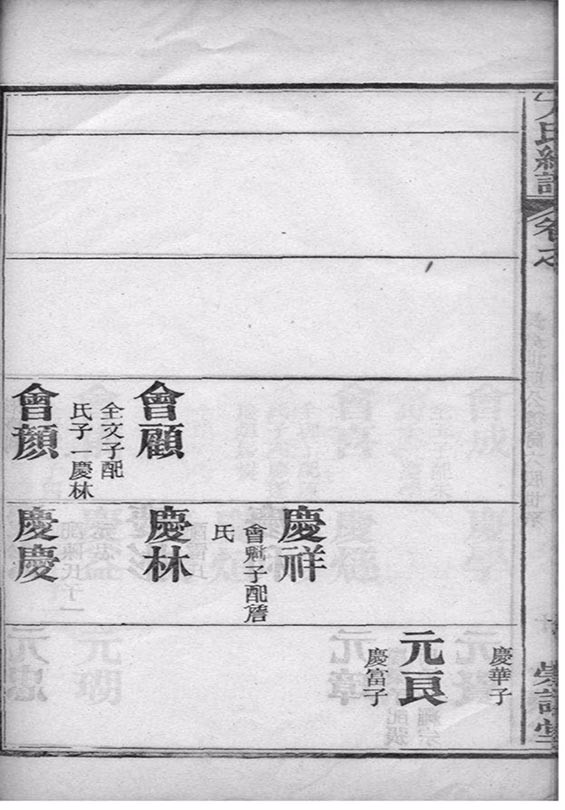 卷之
會顧
全文子配
氏子一慶林
會顏
慶祥
會魁子配詹
氏
慶林
慶慶
慶華子
元良
慶富子